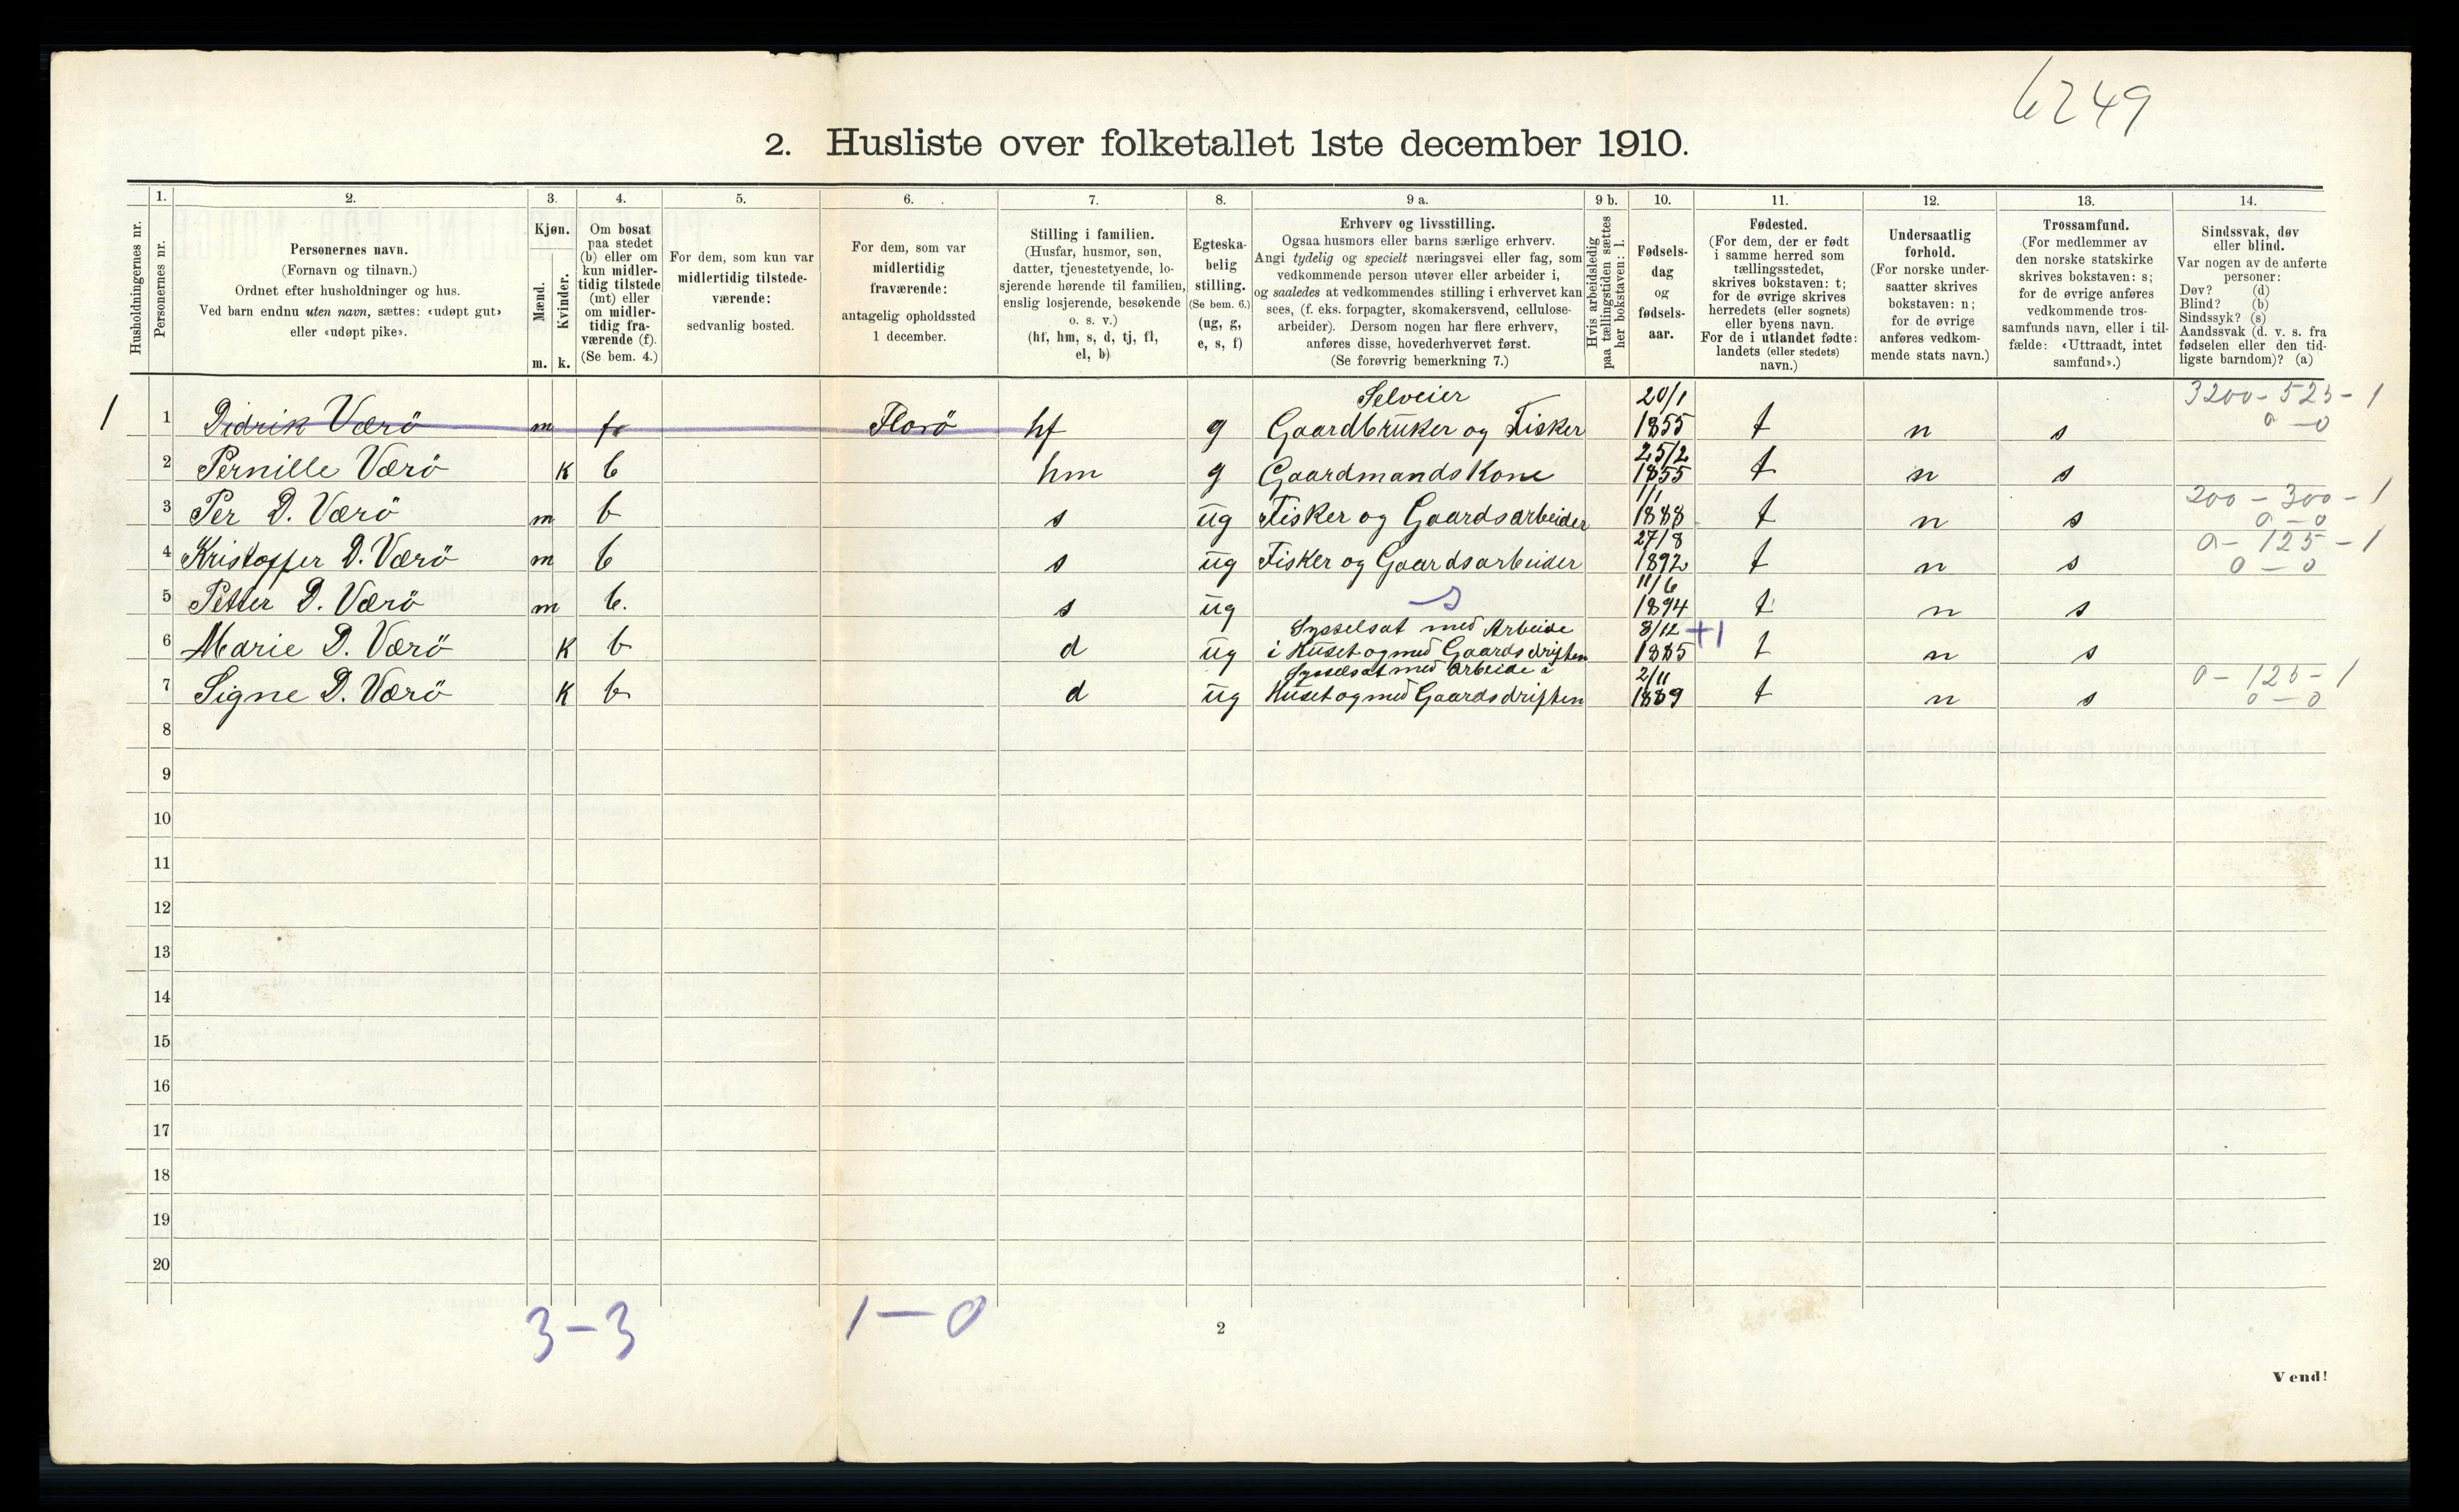 6249
2. Husliste over folketallet 1ste december 1910.
Husholdningernes nr.
1.
Personernes nr.
2.
Personernes navn.
(Fornavn og tilnavn.)
Ordnet efter husholdninger og hus.
Ved barn endnu uten navn, sættes: «udøpt gut»
eller «udøpt pike».
3.
Kjøn.
Mænd.
m.
Kvinder.
k.
4.
Om bosat
paa stedet
(b) eller om
kun midler-
tidig tilstede
(mt) eller
om midler-
tidig fra-
værende (f).
(Se bem. 4.)
5.
For dem, som kun var
midlertidig tilstede-
værende:
sedvanlig bosted.
6.
For dem, som var
midlertidig
fraværende:
antagelig opholdssted
1 december.
7.
Stilling i familien.
(Husfar, husmor, søn,
datter, tjenestetyende, lo-
sjerende hørende til familien,
enslig losjerende, besøkende
o. s. v.)
(hf, hm, s, d, tj, fl,
el, b)
8.
Egteska-
belig
stilling.
(Se bem. 6.)
(ug, g,
e, s, f)
9 a.
Erhverv og livsstilling.
Ogsaa husmors eller barns særlige erhverv.
Angi tydelig og specielt næringsvei eller fag, som
vedkommende person utøver eller arbeider i,
og saaledes at vedkommendes stilling i erhvervet kan
sees, (f. eks. forpagter, skomakersvend, cellulose-
arbeider). Dersom nogen har flere erhverv,
anføres disse, hovederhvervet først.
(Se forøvrig bemerkning 7.)
9 b.
Hvis arbeidsledig
paa tællingstiden sættes
her bokstaven: l.
10.
Fødsels-
dag
og
fødsels-
aar.
11.
Fødested.
(For dem, der er født
i samme herred som
tællingsstedet,
skrives bokstaven: t;
for de øvrige skrives
herredets (eller sognets)
eller byens navn.
For de i utlandet fødte:
landets (eller stedets)
navn.)
12.
Undersaatlig
forhold.
(For norske under-
saatter skrives
bokstaven: n;
for de øvrige
anføres vedkom-
mende stats navn.)
13.
Trossamfund.
(For medlemmer av
den norske statskirke
skrives bokstaven: s;
for de øvrige anføres
vedkommende tros-
samfunds navn, eller i til-
fælde: «Uttraadt, intet
samfund».)
14.
Sindssvak, døv
eller blind.
Var nogen av de anførte
personer:
Døv? (d)
Blind? (b)
Sindssyk? (s)
Aandssvak (d. v. s. fra
fødselen eller den tid-
ligste barndom)? (a)
Selveier 20/1 3200 - 525 - 1
1 1 Didrik Værö m f Florö hf g Gaardbruker og Fisker 1855 t n s 0 - 0
25/2
2 Pernille Værö k b hm g Gaardmandskone 1855 t n s
1/1 200 - 300 - 1
3 Per D. Værö m b s ug Fisker og Gaardsarbeider 1888 t n s 0 - 0
27/8 0 - 125 - 1
4 Kristoffer D. Værö m b s ug Fisker og Gaardsarbeider 1892 t n s 0 - 0
11/6
5 Petter D. Værö m b. s ug s 1894 t n s
Sysselsat med Arbeide 8/12 +1
6 Marie D. Værö k b d ug i Huset og med Gaardsdriften 1885 t n s
Sysselsat med Arbeide i 2/11 0 - 125 - 1
7 Signe D. Værö k b d ug Huset og med Gaardsdriften 1889 t n s 0 - 0
8
9
10
11
12
13
14
15
16
17
18
19
20
3 - 3 1 - 0
2
Vend!